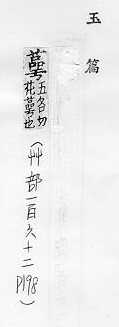 玉篇
蕚
五各切
花蕚也
（艸部一百六十二 P198）